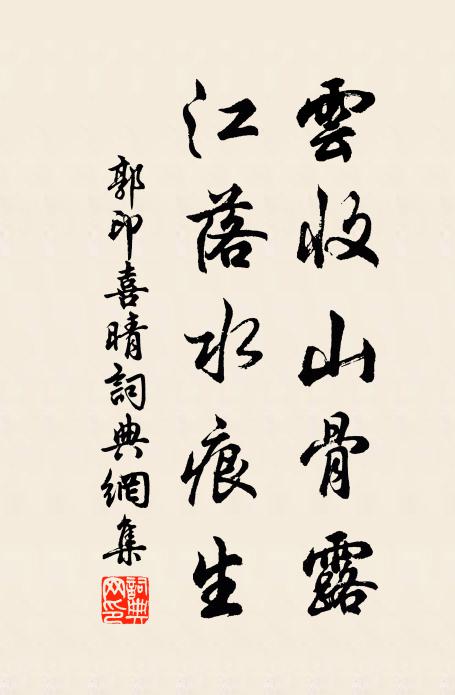 雲收山骨露
江落水痕生
郭印喜晴詞典網集
詞典网印